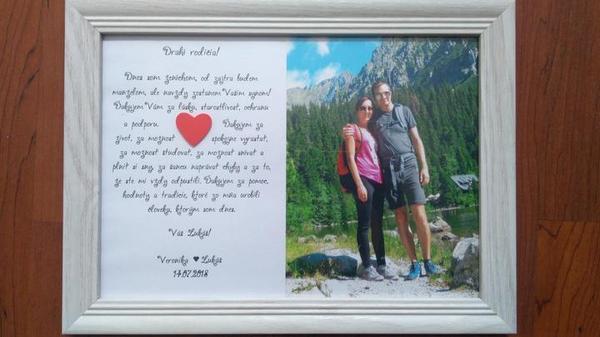 Drahí rodičia!
Dnes som ženíchom, od zajtra budem
manželom, ale navždy zostanem Vaším synom!
Ďakujem Vám za lásku, starostlivosť, ochranu
a podporu. Ďakujem za
život, za možnosť spokojne vyrastať,
za možnosť študovať, za možnosť snívať a
plniť si sny, za šancu napraviť chyby a za to,
že ste mi vždy odpustili. Ďakujem za pomoc,
hodnoty a tradície, ktoré zo mňa urobili
človeka, ktorým som dnes.
Váš Lukáš!
Veronika ♥ Lukáš
14.07.2018